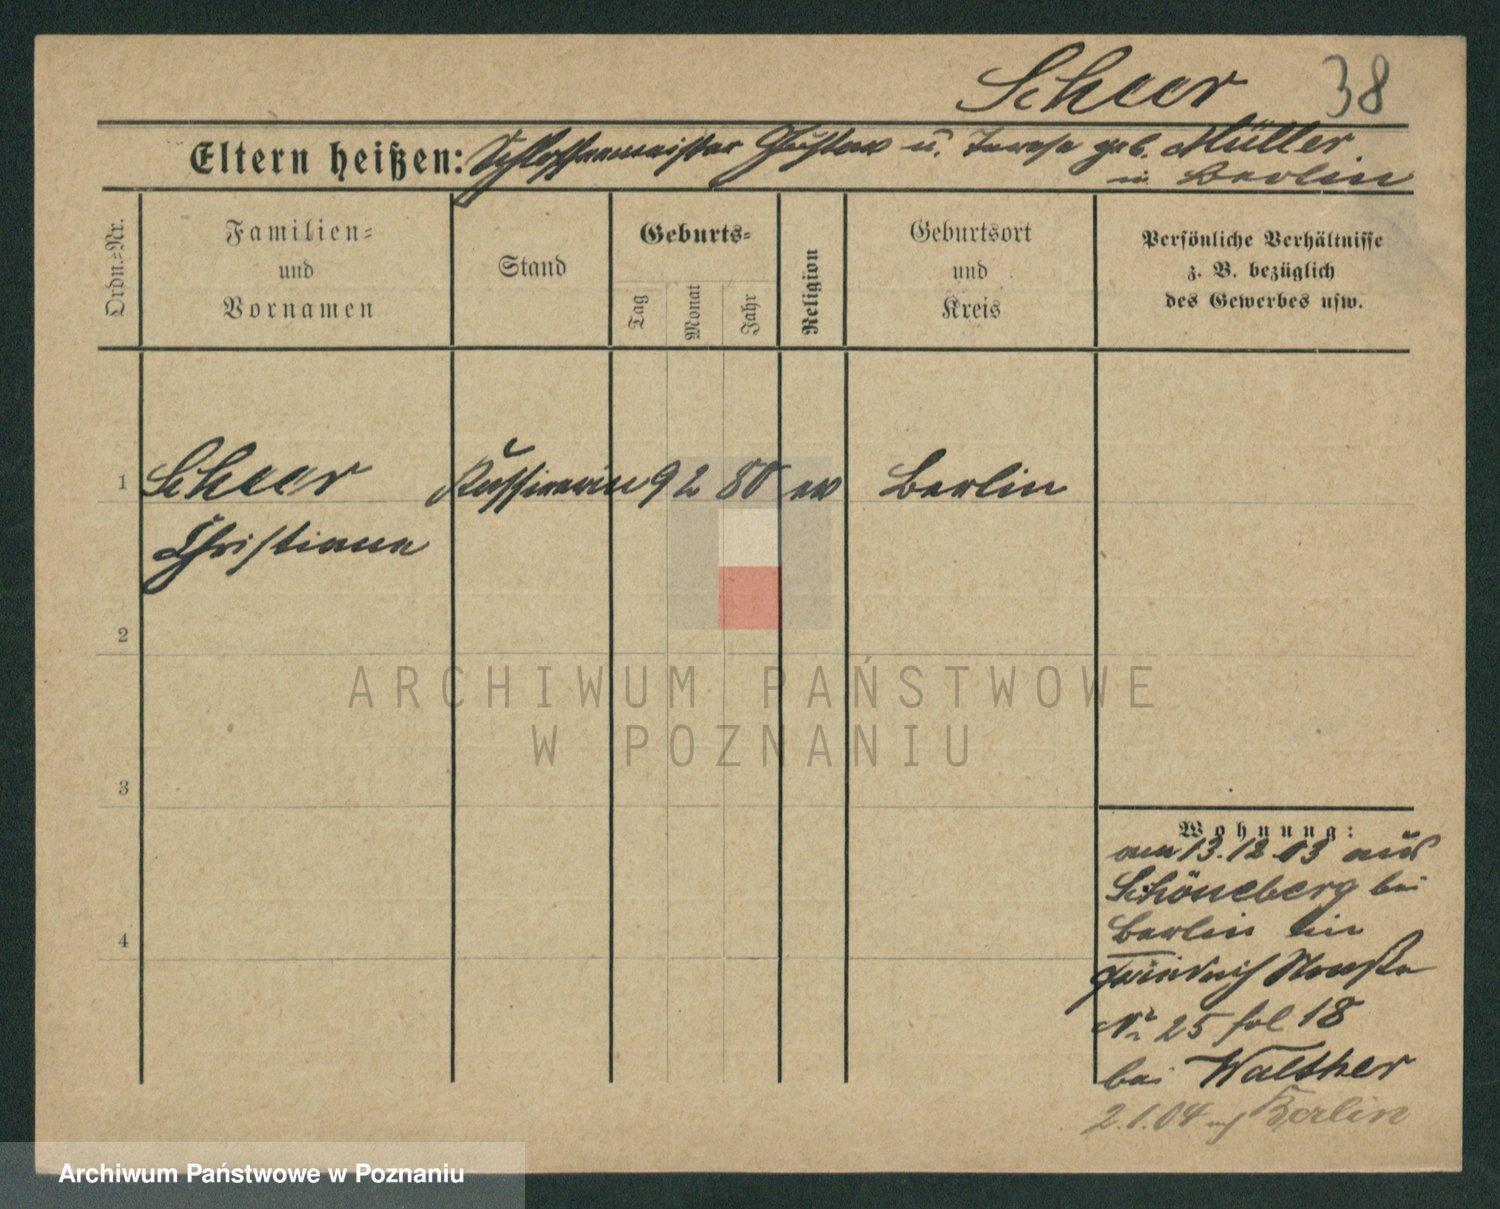 Scheer 38
Eltern heißen: Schlossermeister Gustav u. Terese geb. Müller
in Berlin
Ordn.-Nr.
Familien-
und
Vornamen
Stand
Geburts-
Tag
Monat
Jahr
Religion
Geburtsort
und
Kreis
Persönliche Verhältnisse
z. B. bezüglich
des Gewerbes usw.
1 Scheer Kassiererin 9 2 80 ev Berlin
Christiane
2
ARCHIWUM PAŃSTWOWE
W POZNANIU
3
Wohnung:
am 13.12.03 aus
Schöneberg bei
Berlin hier
Friedrich Straße
Nr 25 fol 18
bei Walther
4
2.1.04 n/ Berlin
Archiwum Państwowe w Poznaniu